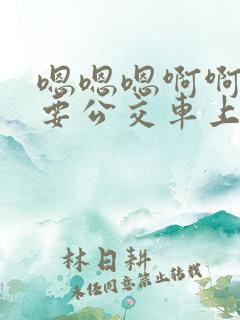 嗯嗯嗯啊啊
要公交車上
林日耕
未经同意禁止转载